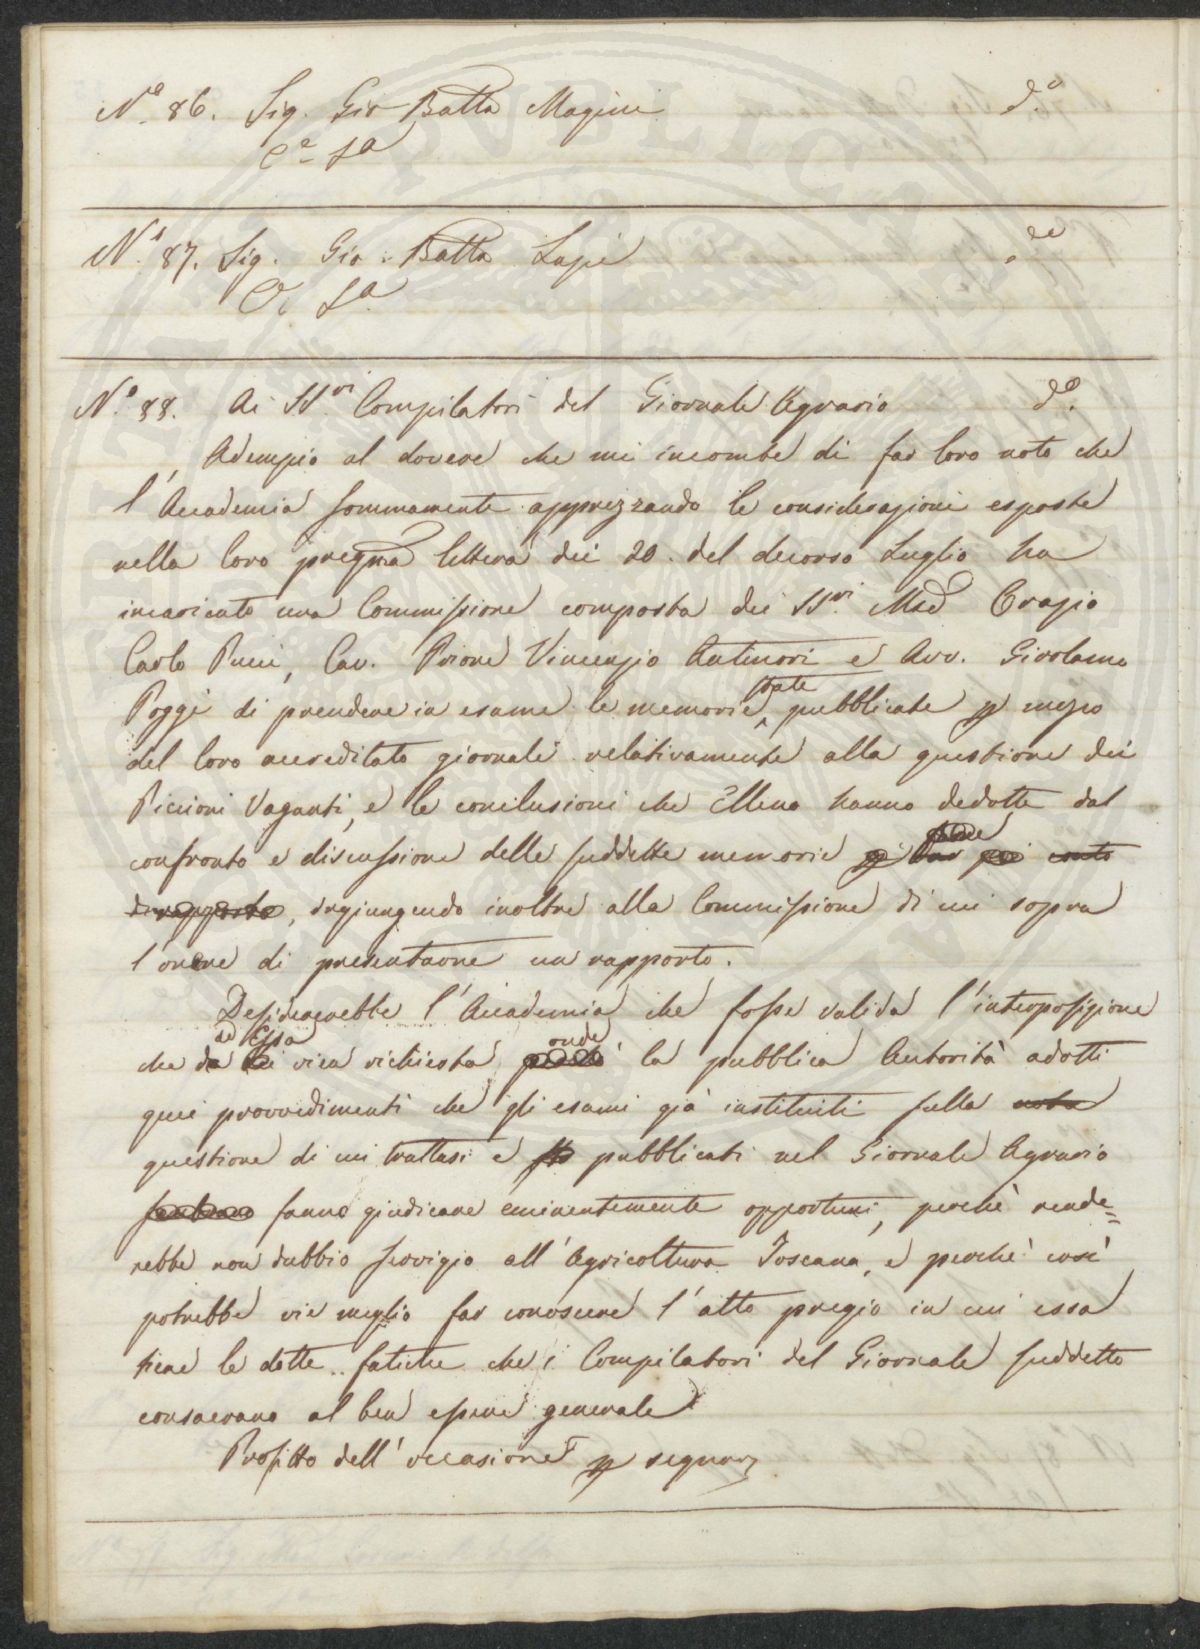 N.o 86. Sig. Gio Batta Magini d.o
C.e Sa
N.o 87. Sig. Gio: Batta Lapi d.o
C.e Sa
N.o 88. Ai SS.ri Compilatori del Giornale Agrario d.o
Adempio al dovere che mi incombe di far loro noto che
l'Accademia sommamente apprezzando le considerazioni esposte
nella loro pregma lettera dei 20. del decorso Luglio ha
incaricato una Commissione composta dei SS.ri Md Orazio
Carlo Pucci, Cav. Priore Vincenzio Antinori e Avv. Girolamo
Poggi di prendere in esame le memorie state pubblicate p mezzo
del loro accreditato giornale relativamente alla questione dei
Piccioni Vaganti, e le conclusioni che Elleno hanno dedotte dal
confronto e discussione delle suddette memorie conto
di rapporto, ingiungendo inoltre alla Commissione di cui sopra
l'onere di presentarne un rapporto.
Desidererebbe l'Accademia che fosse valida l'interposizione
che da ad Essa vien richiesta onde la pubblica Autorità adotti
quei provvedimenti che gli esami già instituiti sulla nota
questione di cui trattasi e pubblicati nel Giornale Agrario
sembrano fanno giudicare eminentemente opportuni, perchè rende=
rebbe non dubbio servigio all'Agricoltura Toscana, e perchè così
potrebbe vie meglio far conoscere l'alto pregio in cui essa
tiene le dotte fatiche che i Compilatori del Giornale suddetto
consacrano al ben essere generale
Profitto dell'occasione p segnarmi